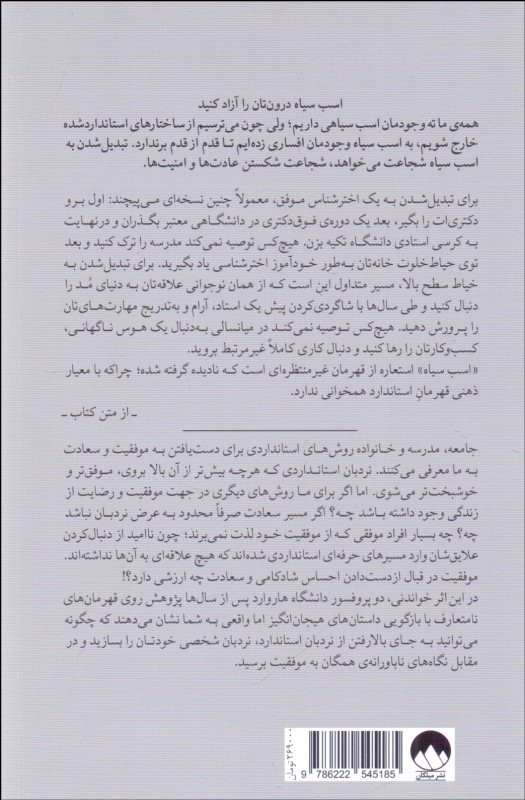 اسب سیاه درون‌تان را آزاد کنید
همه‌ی ما ته وجودمان اسب سیاهی داریم؛ ولی چون می‌ترسیم از ساختارهای استانداردشده
خارج شویم، به اسب سیاه وجودمان افساری زده‌ایم تا قدم از قدم برندارد. تبدیل‌شدن به
اسب سیاه شجاعت می‌خواهد، شجاعت شکستن عادت‌ها و امنیت‌ها.
برای تبدیل‌شدن به یک اخترشناس موفق، معمولاً چنین نسخه‌ای می‌پیچند: اول برو
دکتری‌ات را بگیر، بعد یک دوره‌ی فوق‌دکتری در دانشگاهی معتبر بگذران و درنهایت
به کرسی استادی دانشگاه تکیه بزن. هیچ‌کس توصیه نمی‌کند مدرسه را ترک کنید و بعد
توی حیاط‌خلوت خانه‌تان به‌طور خودآموز اخترشناسی یاد بگیرید. برای تبدیل‌شدن به
خیاط سطح بالا، مسیر متداول این است که از همان نوجوانی علاقه‌تان به دنیای مُد را
دنبال کنید و طی سال‌ها با شاگردی‌کردن پیش یک استاد، آرام و به‌تدریج مهارت‌های‌تان
را پرورش دهید. هیچ‌کس توصیه نمی‌کند در میانسالی به‌دنبال یک هوس ناگهانی،
کسب‌وکارتان را رها کنید و دنبال کاری کاملاً غیرمرتبط بروید.
«اسب سیاه» استعاره از قهرمان غیرمنتظره‌ای است که نادیده گرفته شده؛ چراکه با معیار
ذهنی قهرمانِ استاندارد همخوانی ندارد.
ـ از متن کتاب ـ
جامعه، مدرسه و خانواده روش‌های استانداردی برای دست‌یافتن به موفقیت و سعادت
به ما معرفی می‌کنند. نردبان استانداردی که هرچه بیش‌تر از آن بالا بروی، موفق‌تر و
خوشبخت‌تر می‌شوی. اما اگر برای ما روش‌های دیگری در جهت موفقیت و رضایت از
زندگی وجود داشته باشد چه؟ اگر مسیر سعادت صرفاً محدود به عرض نردبان نباشد
چه؟ چه بسیار افراد موفقی که از موفقیت خود لذت نمی‌برند؛ چون ناامید از دنبال‌کردن
علایق‌شان وارد مسیرهای حرفه‌ای استانداردی شده‌اند که هیچ علاقه‌ای به آن‌ها نداشته‌اند.
موفقیت در قبال ازدست‌دادن احساس شادکامی و سعادت چه ارزشی دارد؟!
در این اثر خواندنی، دو پروفسور دانشگاه هاروارد پس از سال‌ها پژوهش روی قهرمان‌های
نامتعارف با بازگویی داستان‌های هیجان‌انگیز اما واقعی به شما نشان می‌دهند که چگونه
می‌توانید به جای بالارفتن از نردبان استاندارد، نردبان شخصی خودتان را بسازید و در
مقابل نگاه‌های ناباورانه‌ی همگان به موفقیت برسید.
۲۶۹۰۰۰ تومان
9 786222 545185
نشر میلکان